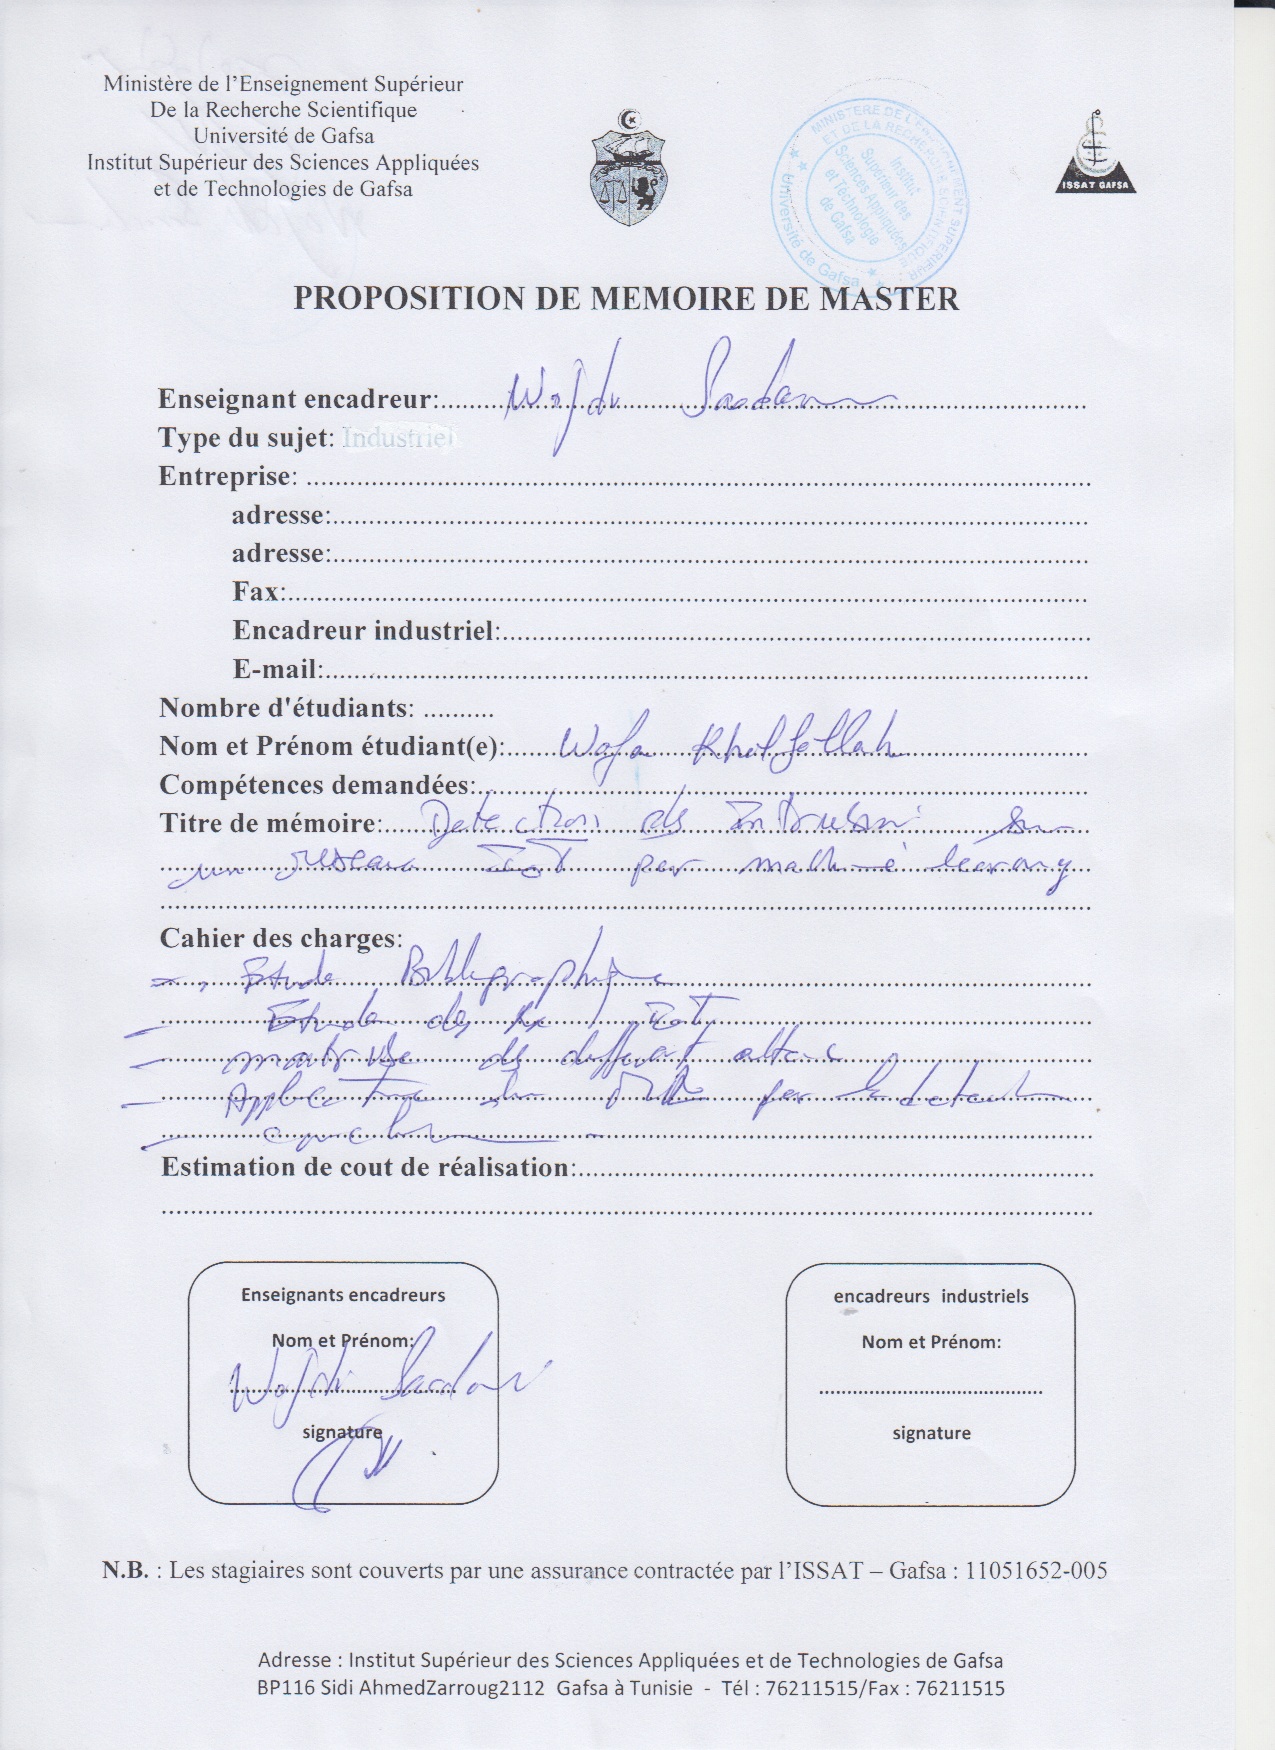 Ministère de l'Enseignement Supérieur
De la Recherche Scientifique
Université de Gafsa
Institut Supérieur des Sciences Appliquées
et de Technologies de Gafsa
MINISTERE DE L'ENSEIGNEMENT SUPERIEUR
ET DE LA RECHERCHE SCIENTIFIQUE
Institut
Supérieur des
Sciences Appliquées
et Technologie
de Gafsa
Université de Gafsa
ISSAT GAFSA
PROPOSITION DE MEMOIRE DE MASTER
Enseignant encadreur: Wajdi Saadaoui
Type du sujet: Industriel
Entreprise:
adresse:
adresse:
Fax:
Encadreur industriel:
E-mail:
Nombre d'étudiants:
Nom et Prénom étudiant(e): Wafa Khalfallah
Compétences demandées:
Titre de mémoire: Detection des Intrusions sur
un reseau IoT par machine learning
Cahier des charges:
- Etude Bibliographique
- Etude des IoT
- des different
- Application par la
Estimation de cout de réalisation:
Enseignants encadreurs
Nom et Prénom:
Wajdi Saadaoui
signature
encadreurs industriels
Nom et Prénom:
signature
N.B. : Les stagiaires sont couverts par une assurance contractée par l'ISSAT – Gafsa : 11051652-005
Adresse : Institut Supérieur des Sciences Appliquées et de Technologies de Gafsa
BP116 Sidi AhmedZarroug2112 Gafsa à Tunisie - Tél : 76211515/Fax : 76211515